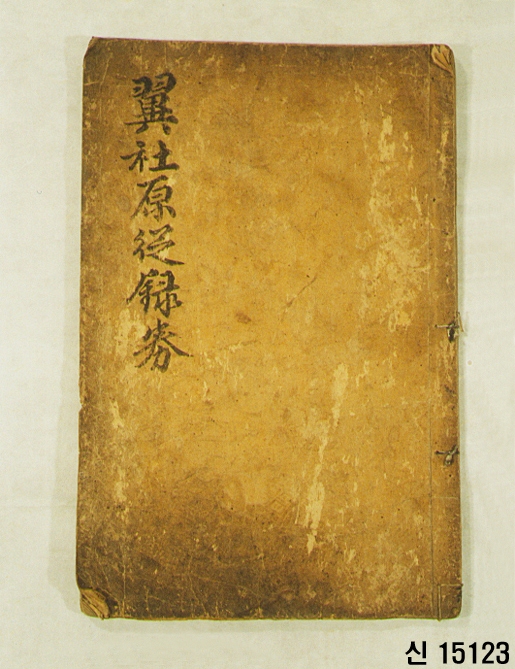 翼社原從録券
신 15123